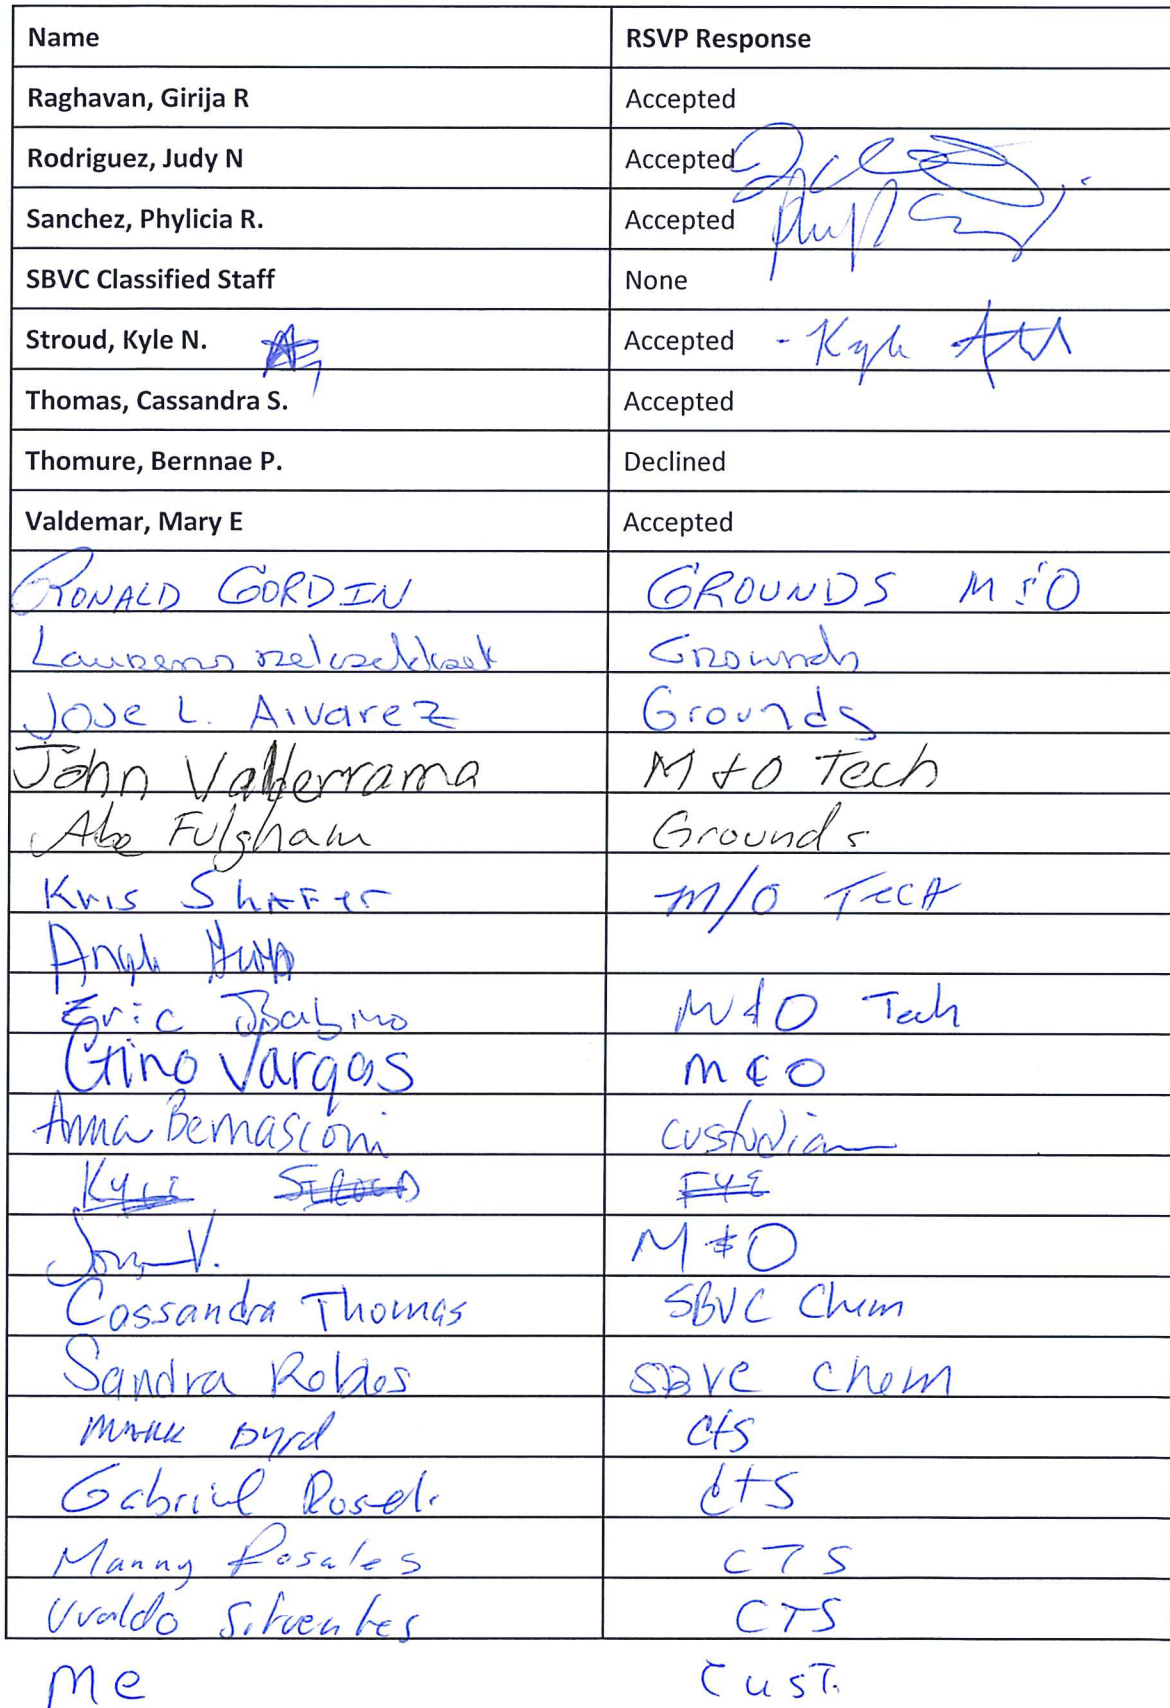 Name RSVP Response
Raghavan, Girija R Accepted
Rodriguez, Judy N Accepted
Sanchez, Phylicia R. Accepted
SBVC Classified Staff None
Stroud, Kyle N. Accepted - Kyle
Thomas, Cassandra S. Accepted
Thomure, Bernnae P. Declined
Valdemar, Mary E Accepted
RONALD GORDIN GROUNDS M & O
Laurens Grounds
Jose L. Alvarez Grounds
John Valderrama M & O Tech
Abe Fulgham Grounds
Kris Shafer M/O TECH
Eric Babino M & O Tech
Gino Vargas M & O
Anna Bernasconi custodian
Kyle Stroud FYE
V. M & O
Cassandra Thomas SBVC Chem
Sandra Robles SBVC Chem
Mark Byrd CTS
Gabriel CTS
Manny Rosales CTS
Uvaldo Sifuentes CTS
Me Cust.